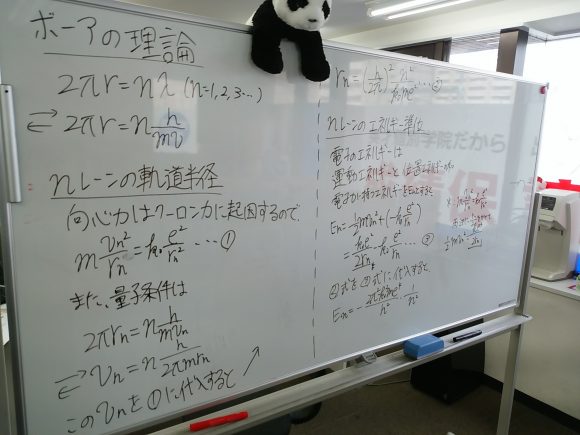 ボーアの理論
2πr=nλ (n=1,2,3…)
⇄ 2πr=n h/mv
nレーンの軌道半径
向心力はクーロン力に起因するので、
m vn²/rn = k₀ e²/rn² …①
また、量子条件は
2πrn=n h/mvn
⇄ vn=n h/2πmrn
このvnを①に代入すると
rn=(h/2π)² n²/k₀me² …②
nレーンのエネルギー準位
電子のエネルギーは
運動エネルギーと位置エネルギーの
電子が持つエネルギーをEnとすると
En=½mvn²+(-k₀ e²/rn)
= k₀e²/2rn - k₀ e²/rn …③
②式を③式に代入すると、
En=- 2π²k₀²me⁴/h² · 1/n²
学院だから
保